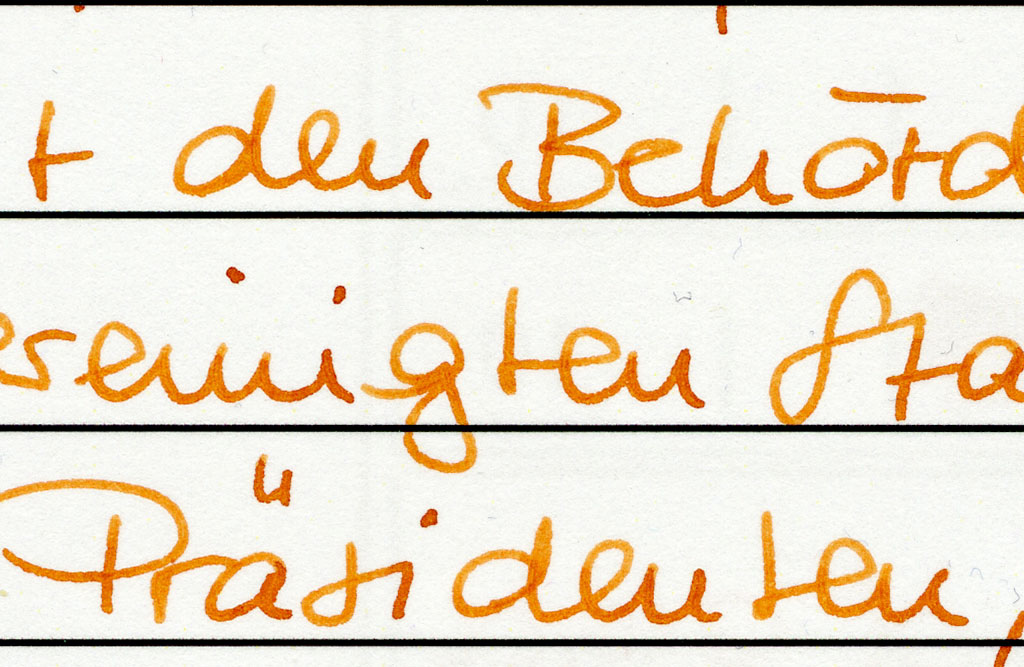 t den Behörd
ereinigten Sta
Präsidenten,